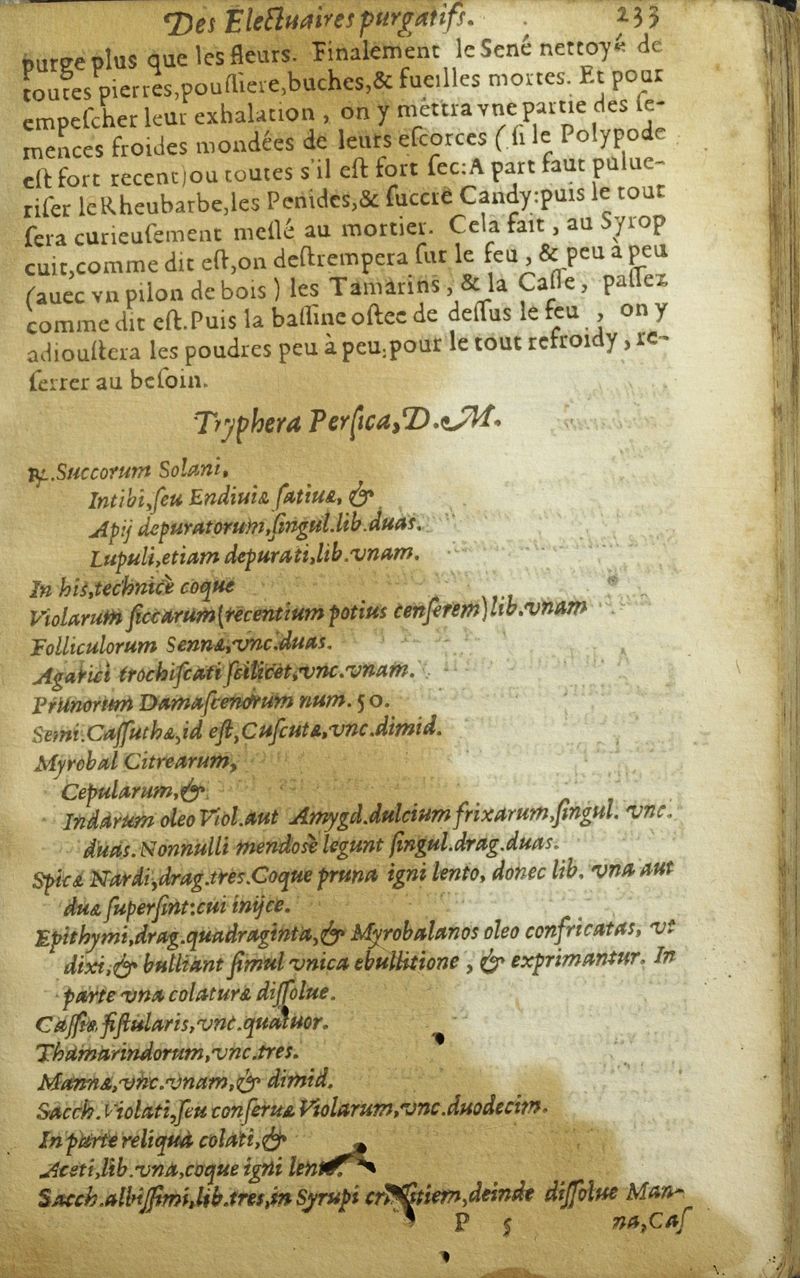 Des Electuaires purgatifs. 233
purge plus que les fleurs. Finalement le Sené nettoyé de
toutes pierres,poussiere,buches,& fueilles mortes. Et pour
empescher leur exhalation , on y mettra vne partie des se-
mences froides mondées de leurs escorces ( si le Polypode
est fort recent)ou toutes s'il est fort sec:A part faut pulue-
riser le Rheubarbe,les Penides,& succre Candy:puis le tout
sera curieusement meslé au mortier. Cela fait , au Syrop
cuit,comme dit est,on destrempera sur le feu , & peu à peu
(auec vn pilon de bois ) les Tamarins , & la Casse , passez
comme dit est.Puis la bassine ostee de dessus le feu , on y
adioustera les poudres peu à peu:pour le tout refroidy , re-
serrer au besoin.
Tryphera Persica,D.M.
℞.Succorum Solani,
Intibi,seu Endiuiæ satiuæ, &
Apij depuratorum,singul.lib.duas.
Lupuli,etiam depurati,lib.vnam.
In his,technicè coque
Violarum siccarum(recentium potius censerem)lib.vnam
Folliculorum Sennæ,vnc.duas.
Agarici trochiscati scilicet,vnc.vnam.
Prunorum Damascenorum num. 50.
Semi.Cassuthæ,id est,Cuscutæ,vnc.dimid.
Myrobal Citrearum,
Cepularum,&
Indarum oleo Viol.aut Amygd.dulcium frixarum,singul. vnc.
duas. Nonnulli mendosè legunt singul.drag.duas.
Spicæ Nardi,drag.tres.Coque pruna igni lento, donec lib. vna aut
duæ supersint:cui inijce.
Epithymi,drag.quadraginta,& Myrobalanos oleo confricatas, vt
dixi,& bulliant simul vnica ebullitione , & exprimantur. In
parte vna colaturæ dissolue.
Cassiæ fistularis,vnc.quatuor.
Thamarindorum,vnc.tres.
Mannæ,vnc.vnam,& dimid.
Sacch.Violati,seu conseruæ Violarum,vnc.duodecim.
In parte reliqua colati,&
Aceti,lib.vna,coque igni lento.
Sacch.albissimi,lib.tres,in Syrupi crassitiem,deinde dissolue Man-
P 5 na,Cas